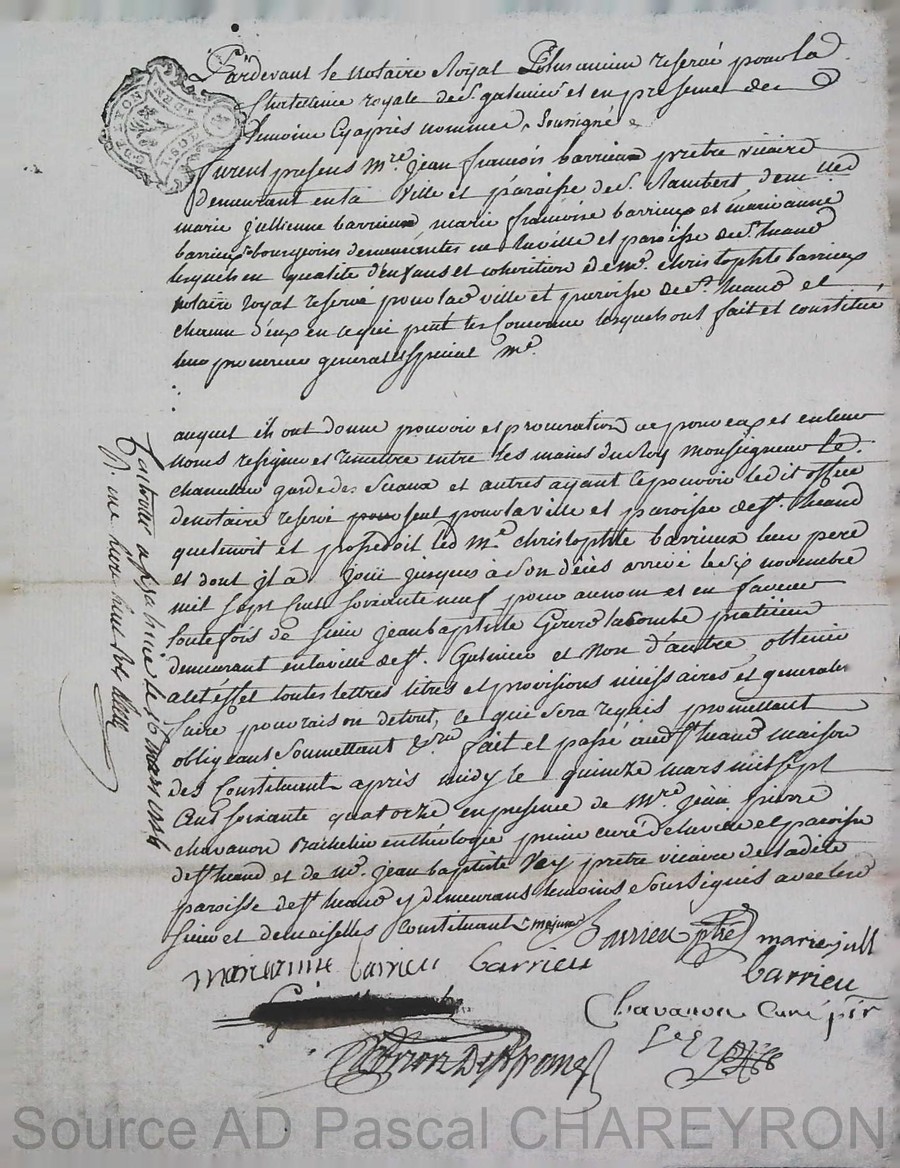 Pardevant le notaire Royal Plus ancien reservé pour la
Chatellenie royale de St. galmier et en presence des
temoins Cyaprès nommes, Soussignés
furent presens Mre. jean françois barrieux prètre vicaire
demeurant en la ville et paroisse de St. Rambert, demlles
marie jullienne barrieux, marie françoise barrieux et marieanne
barrieux bourgeoises demeurantes en la ville et paroisse de St. heand
lesquels en qualité d'enfans et cohéritiers de Me. christophle barrieux
notaire royal reservé pour lad ville et paroisse de St. heand et
chacun d'eux en ce qui peut les Concerne lesquels ont fait et constitué
leur procureur general et special Me.
auquel ils ont donné pouvoir et procuration de pour eux et en leur
noms resigner et remettre entre les mains du Roy Monseigneur le
chancelier garde des Sceaux et autres ayant le pouvoir ledit office
de notaire reservé pour seul pour la ville et paroisse de St. heand
que tenoit et possedoit led Me. christophle barrieux leur pere
et dont il a jouï jusques à son décès arrivé le six novembre
mil sept cent soixante neuf pour au nom et en faveur
toutefois de sieur jean baptiste Girard lacombe praticien
demeurant en la ville de St. Galmier et Non d'autre, obtenir
a cet éffet toutes lettres titres et provisions necessaires et generalement
faire pour raison de tout, ce qui sera requis promettant
obligeant soumettant fait et passé aud St. heand maison
des Constituants après midy le quinze mars mil sept
Cent soixante quatorze en presence de Mre. jean pierre
chavanon Bachelier en théologie prieur curé de la ville et paroisse
de St. heand et de Me. jean baptiste Rey prètre vicaire de ladite
paroisse de St. heand y demeurans temoins Soussignés avec led
sieur et demoiselles Constituants majeurs
Barrieu ptre marie jull
marianne barrieu barrieu barrieu
Chavanon Curé
Rey
Controllé a le 16 mars 1774